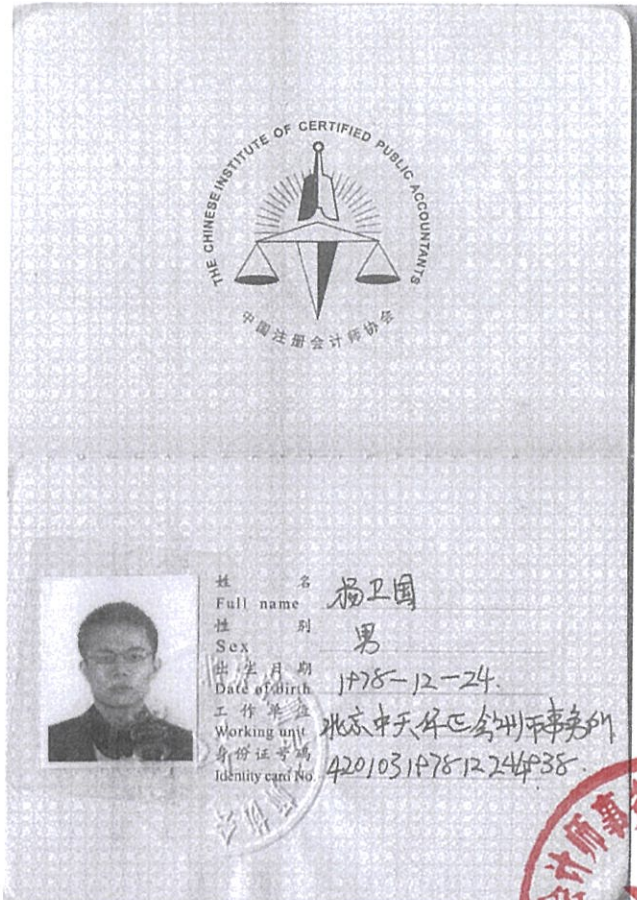 THE CHINESE INSTITUTE OF CERTIFIED PUBLIC ACCOUNTANTS
中国注册会计师协会
姓 名
Full name 杨卫国
性 别
Sex 男
出生日期
Date of birth 1978-12-24.
工作单位
Working unit 北京中天华正会计师事务所
身份证号码
Identity card No. 420103197812244938.
计师事